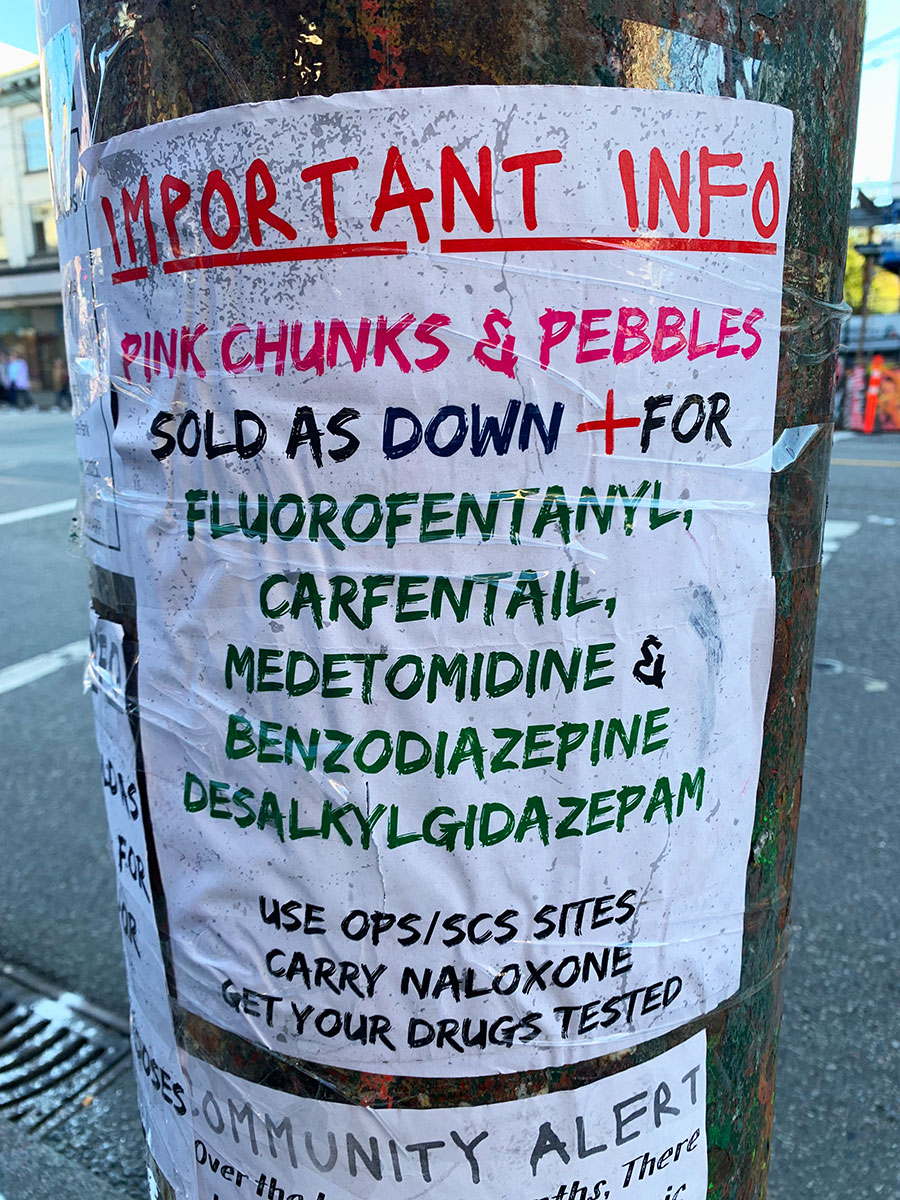 IMPORTANT INFO
PINK CHUNKS & PEBBLES
SOLD AS DOWN +FOR
FLUOROFENTANYL,
CARFENTAIL,
MEDETOMIDINE &
BENZODIAZEPINE
DESALKYLGIDAZEPAM
USE OPS/SCS SITES
CARRY NALOXONE
GET YOUR DRUGS TESTED
AS
FOR
OR
OSES
COMMUNITY ALERT
Over the
There